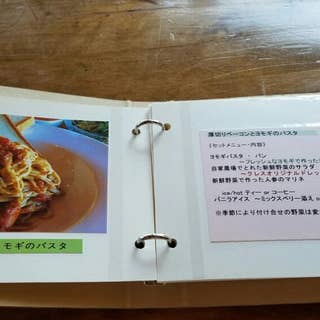 モギのパスタ
厚切りベーコンとヨモギのパスタ
(セットメニュー・内容)
ヨモギパスタ ・ パン
～フレッシュなヨモギで作った
自家農場でとれた新鮮野菜のサラダ
～クレスオリジナルドレッ
新鮮野菜で作った人参のマリネ
ice/hot ティー or コーヒー
バニラアイス ～ミックスベリー添え
※季節により付け合せの野菜は変